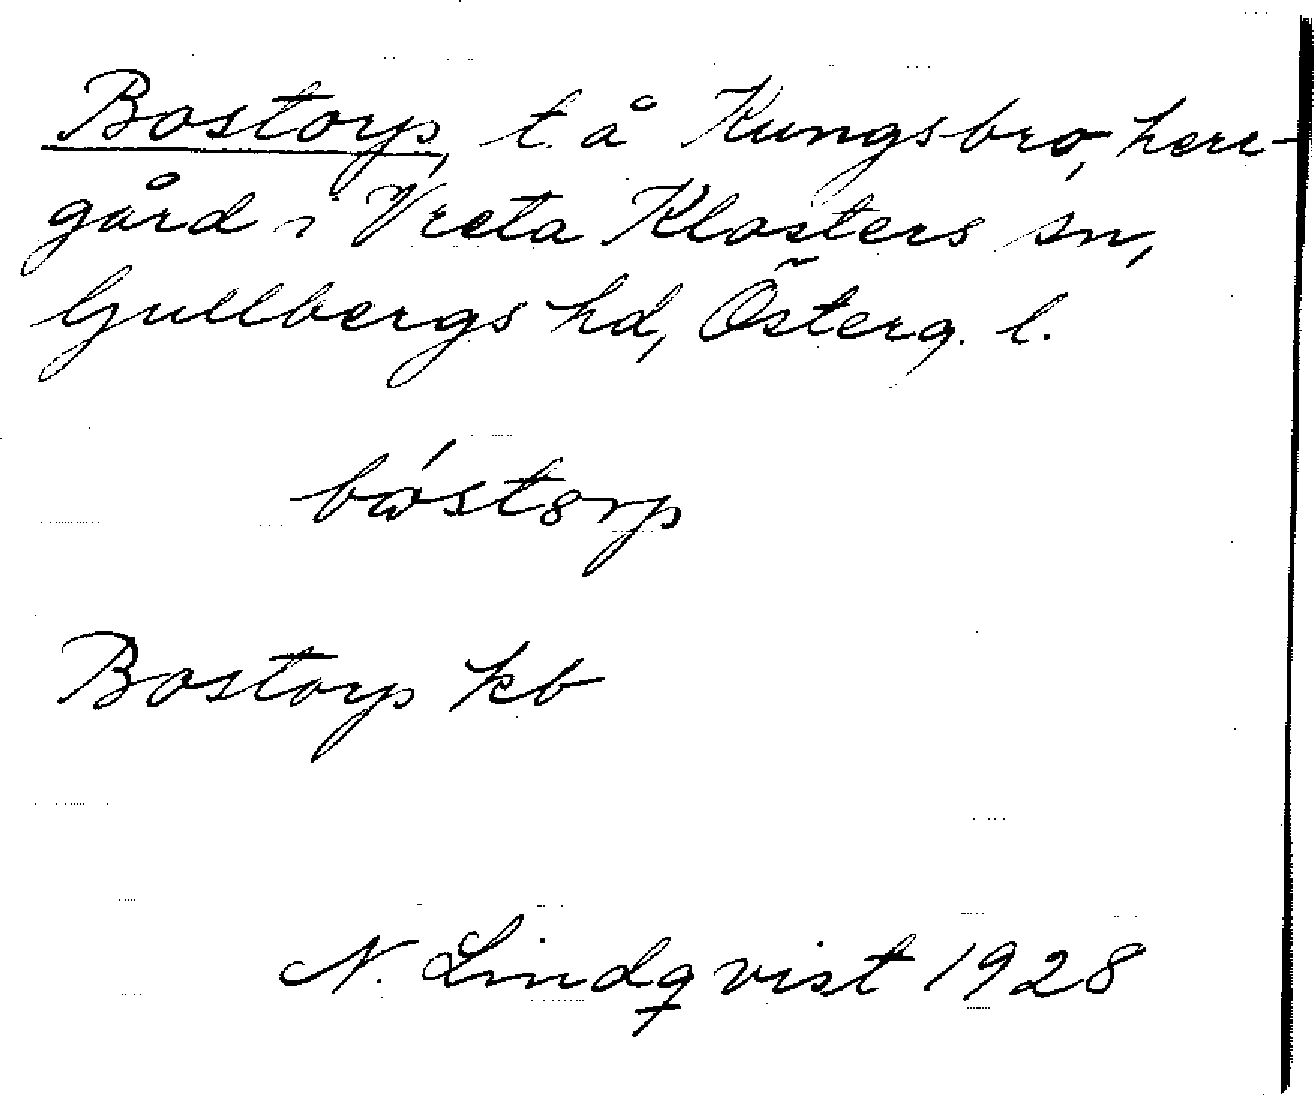 Bostorp, t. å Kungsbro, herr-
gård i Vreta Klosters sn,
Gullbergs hd, Österg. l.
Bostorp kb
N. Lindqvist 1928